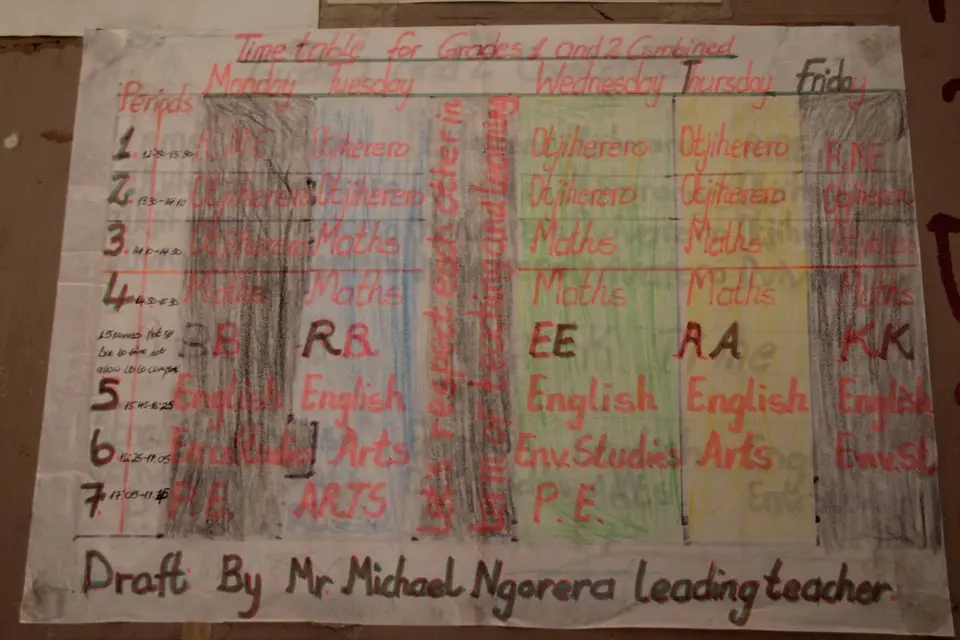 Time table for Grades 1 and 2 Combined
Periods Monday Tuesday Wednesday Thursday Friday
1. R.M.E Otjiherero Otjiherero Otjiherero R.M.E
2. 13.30-14.10 Otjiherero Otjiherero Otjiherero Otjiherero Otjiherero
3. 14.10-14.50 Otjiherero Maths Maths Maths
4. 14.50-15.30 Maths Maths Maths Maths Maths
BB RB EE AA KK
5 15.45-16.25 English English English English English
6 16.25-17.05 Env.Studies Arts Env.Studies Arts Env.St
7. P.E. ARTS P.E.
Let's respect each other in
term of teaching and learning
Draft By Mr. Michael Ngorera leading teacher.